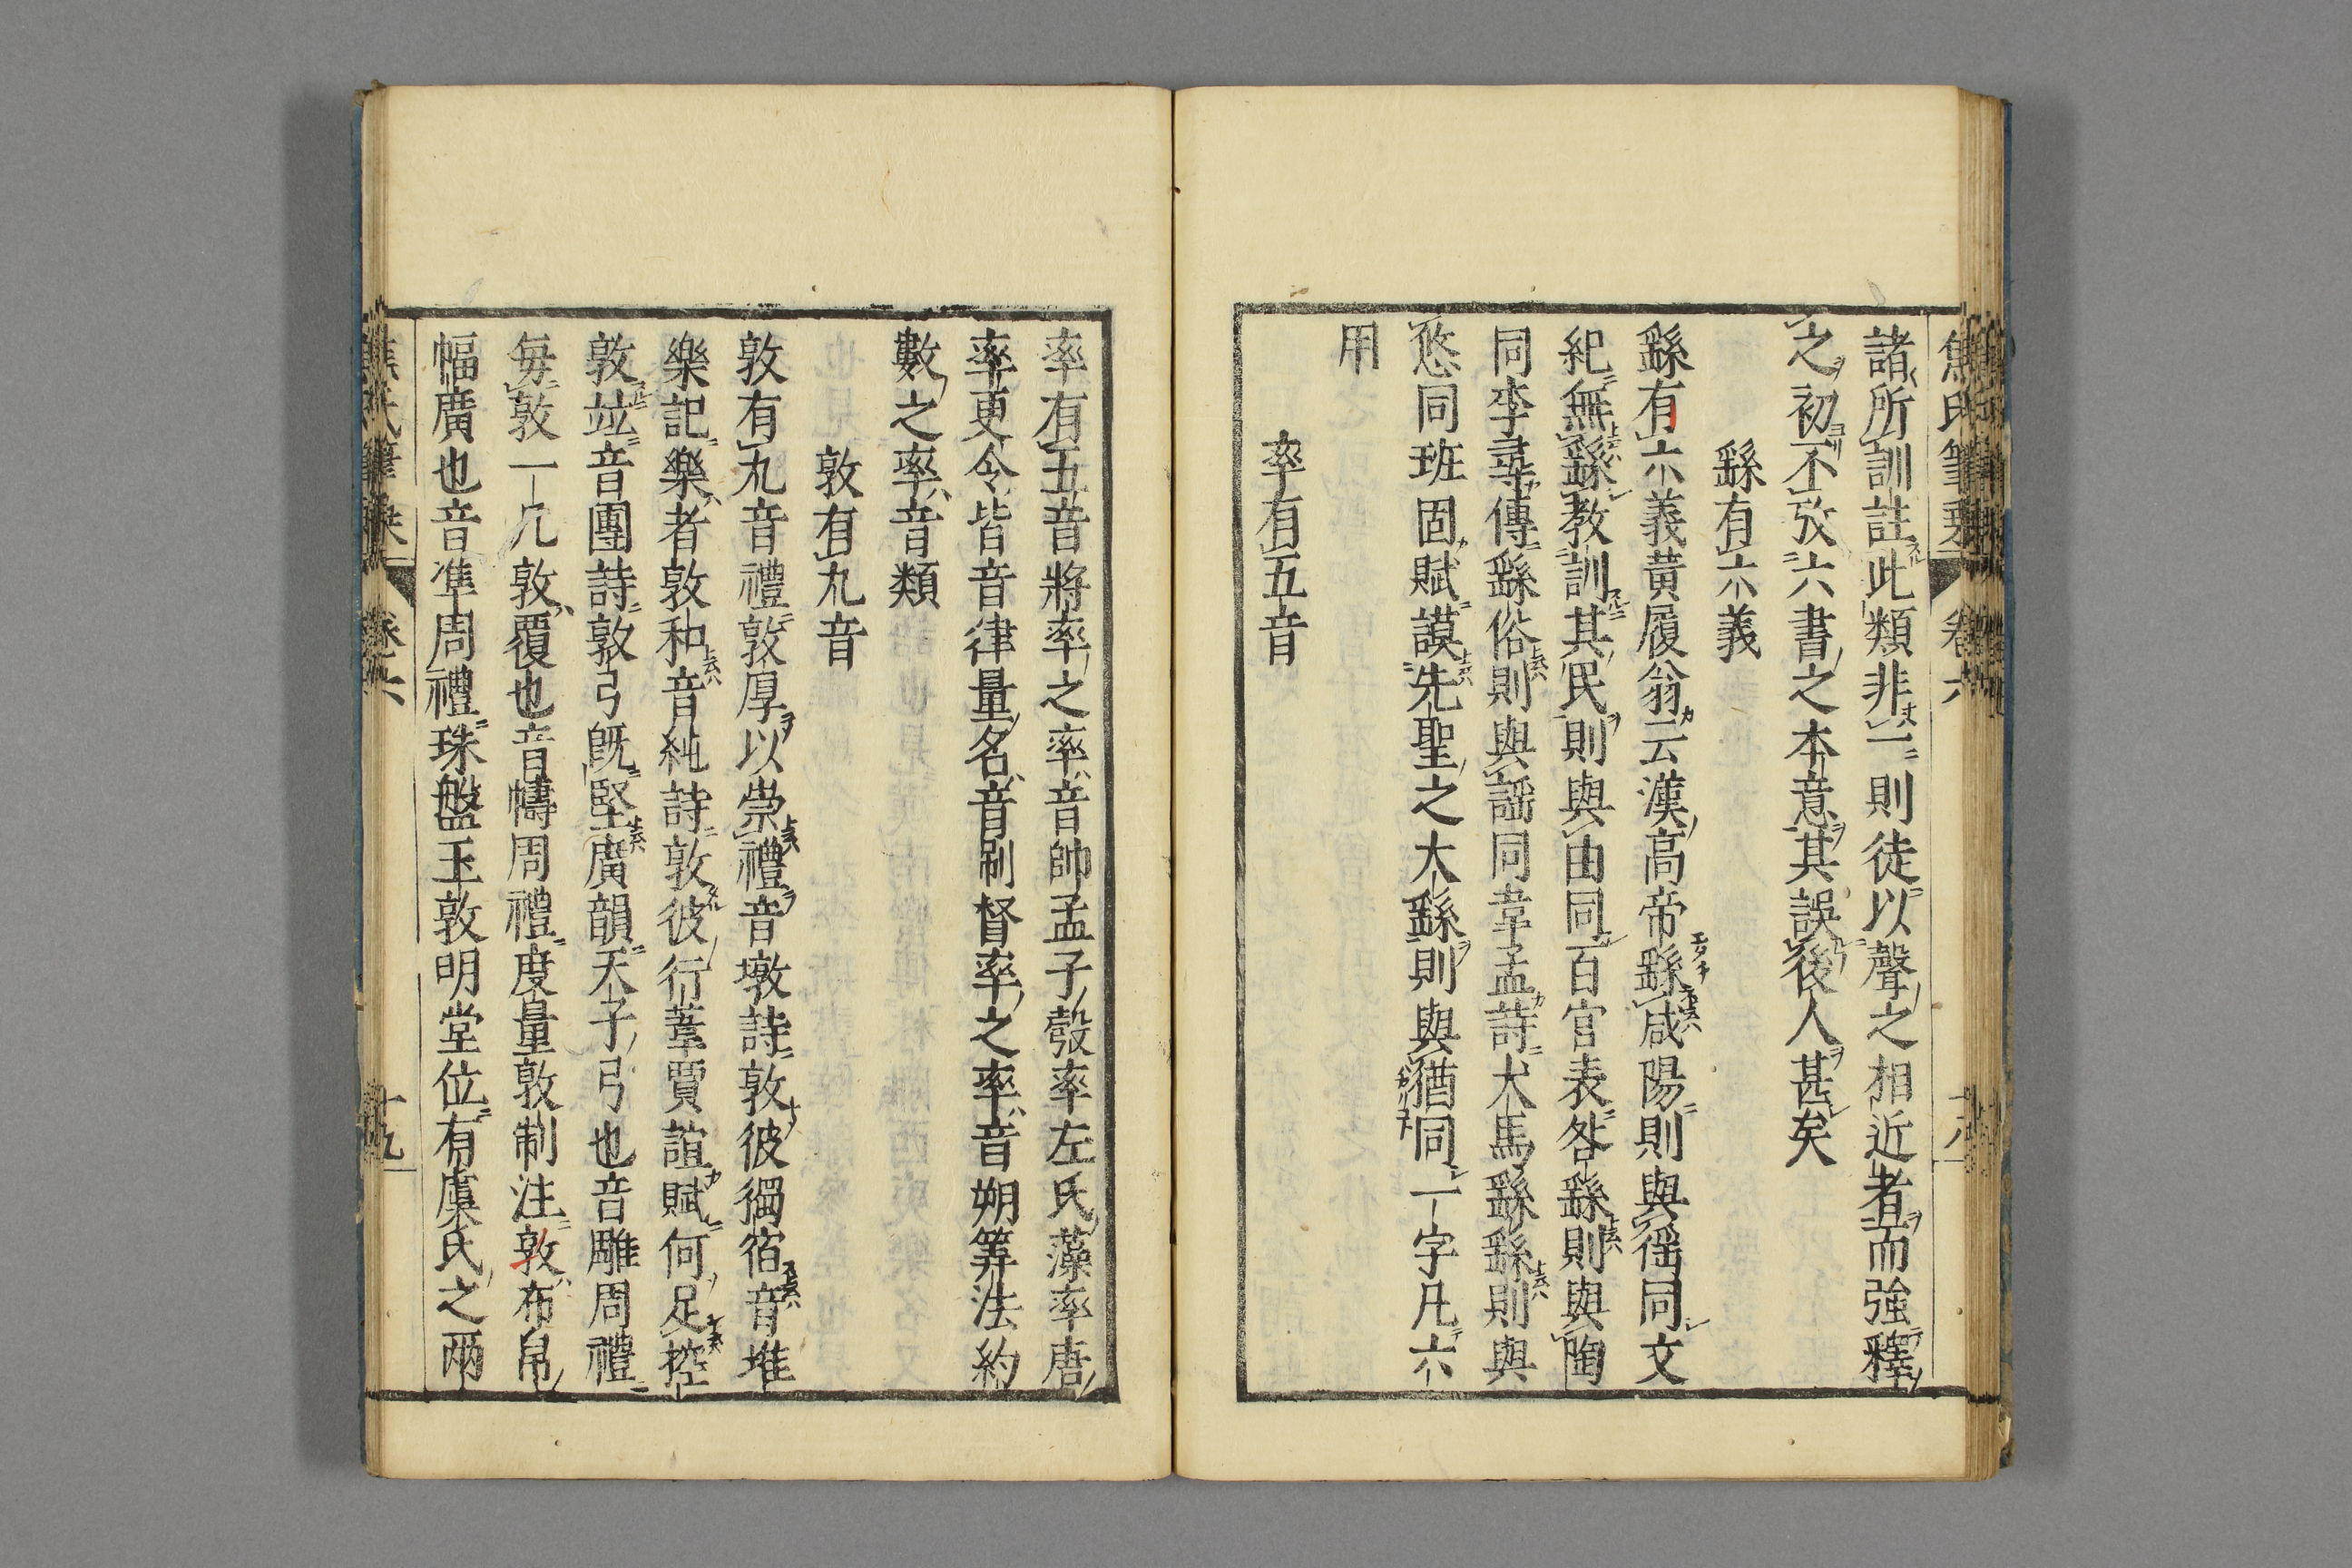 焦氏筆乗 卷六 十八
諸所訓註此類非一則徒以聲之相近者而強釋
之初不攷六書之本意其誤後人甚矣
繇有六義
繇有六義黃履翁云漢高帝繇咸陽則與徭同文
紀無繇教訓其民則與由同百官表咎繇則與陶
同李尋傳繇俗則與謡同韋孟詩犬馬繇繇則與
悠同班固賦謨先聖之大繇則與猶同一字凡六
用
率有五音
率有五音將率之率音帥孟子彀率左氏藻率唐
率更令皆音律量名音刷督率之率音朔筭法約
數之率音類
敦有九音
敦有九音禮敦厚以崇禮音墩詩敦彼獨宿音堆
樂記樂者敦和音純詩敦彼行葦賈誼賦何足控
敦竝音團詩敦弓旣堅廣韻天子弓也音雕周禮
每敦一几敦覆也音幬周禮度量敦制注敦布帛
幅廣也音準周禮珠盤玉敦明堂位有虞氏之兩
焦氏筆乗 卷六 十九